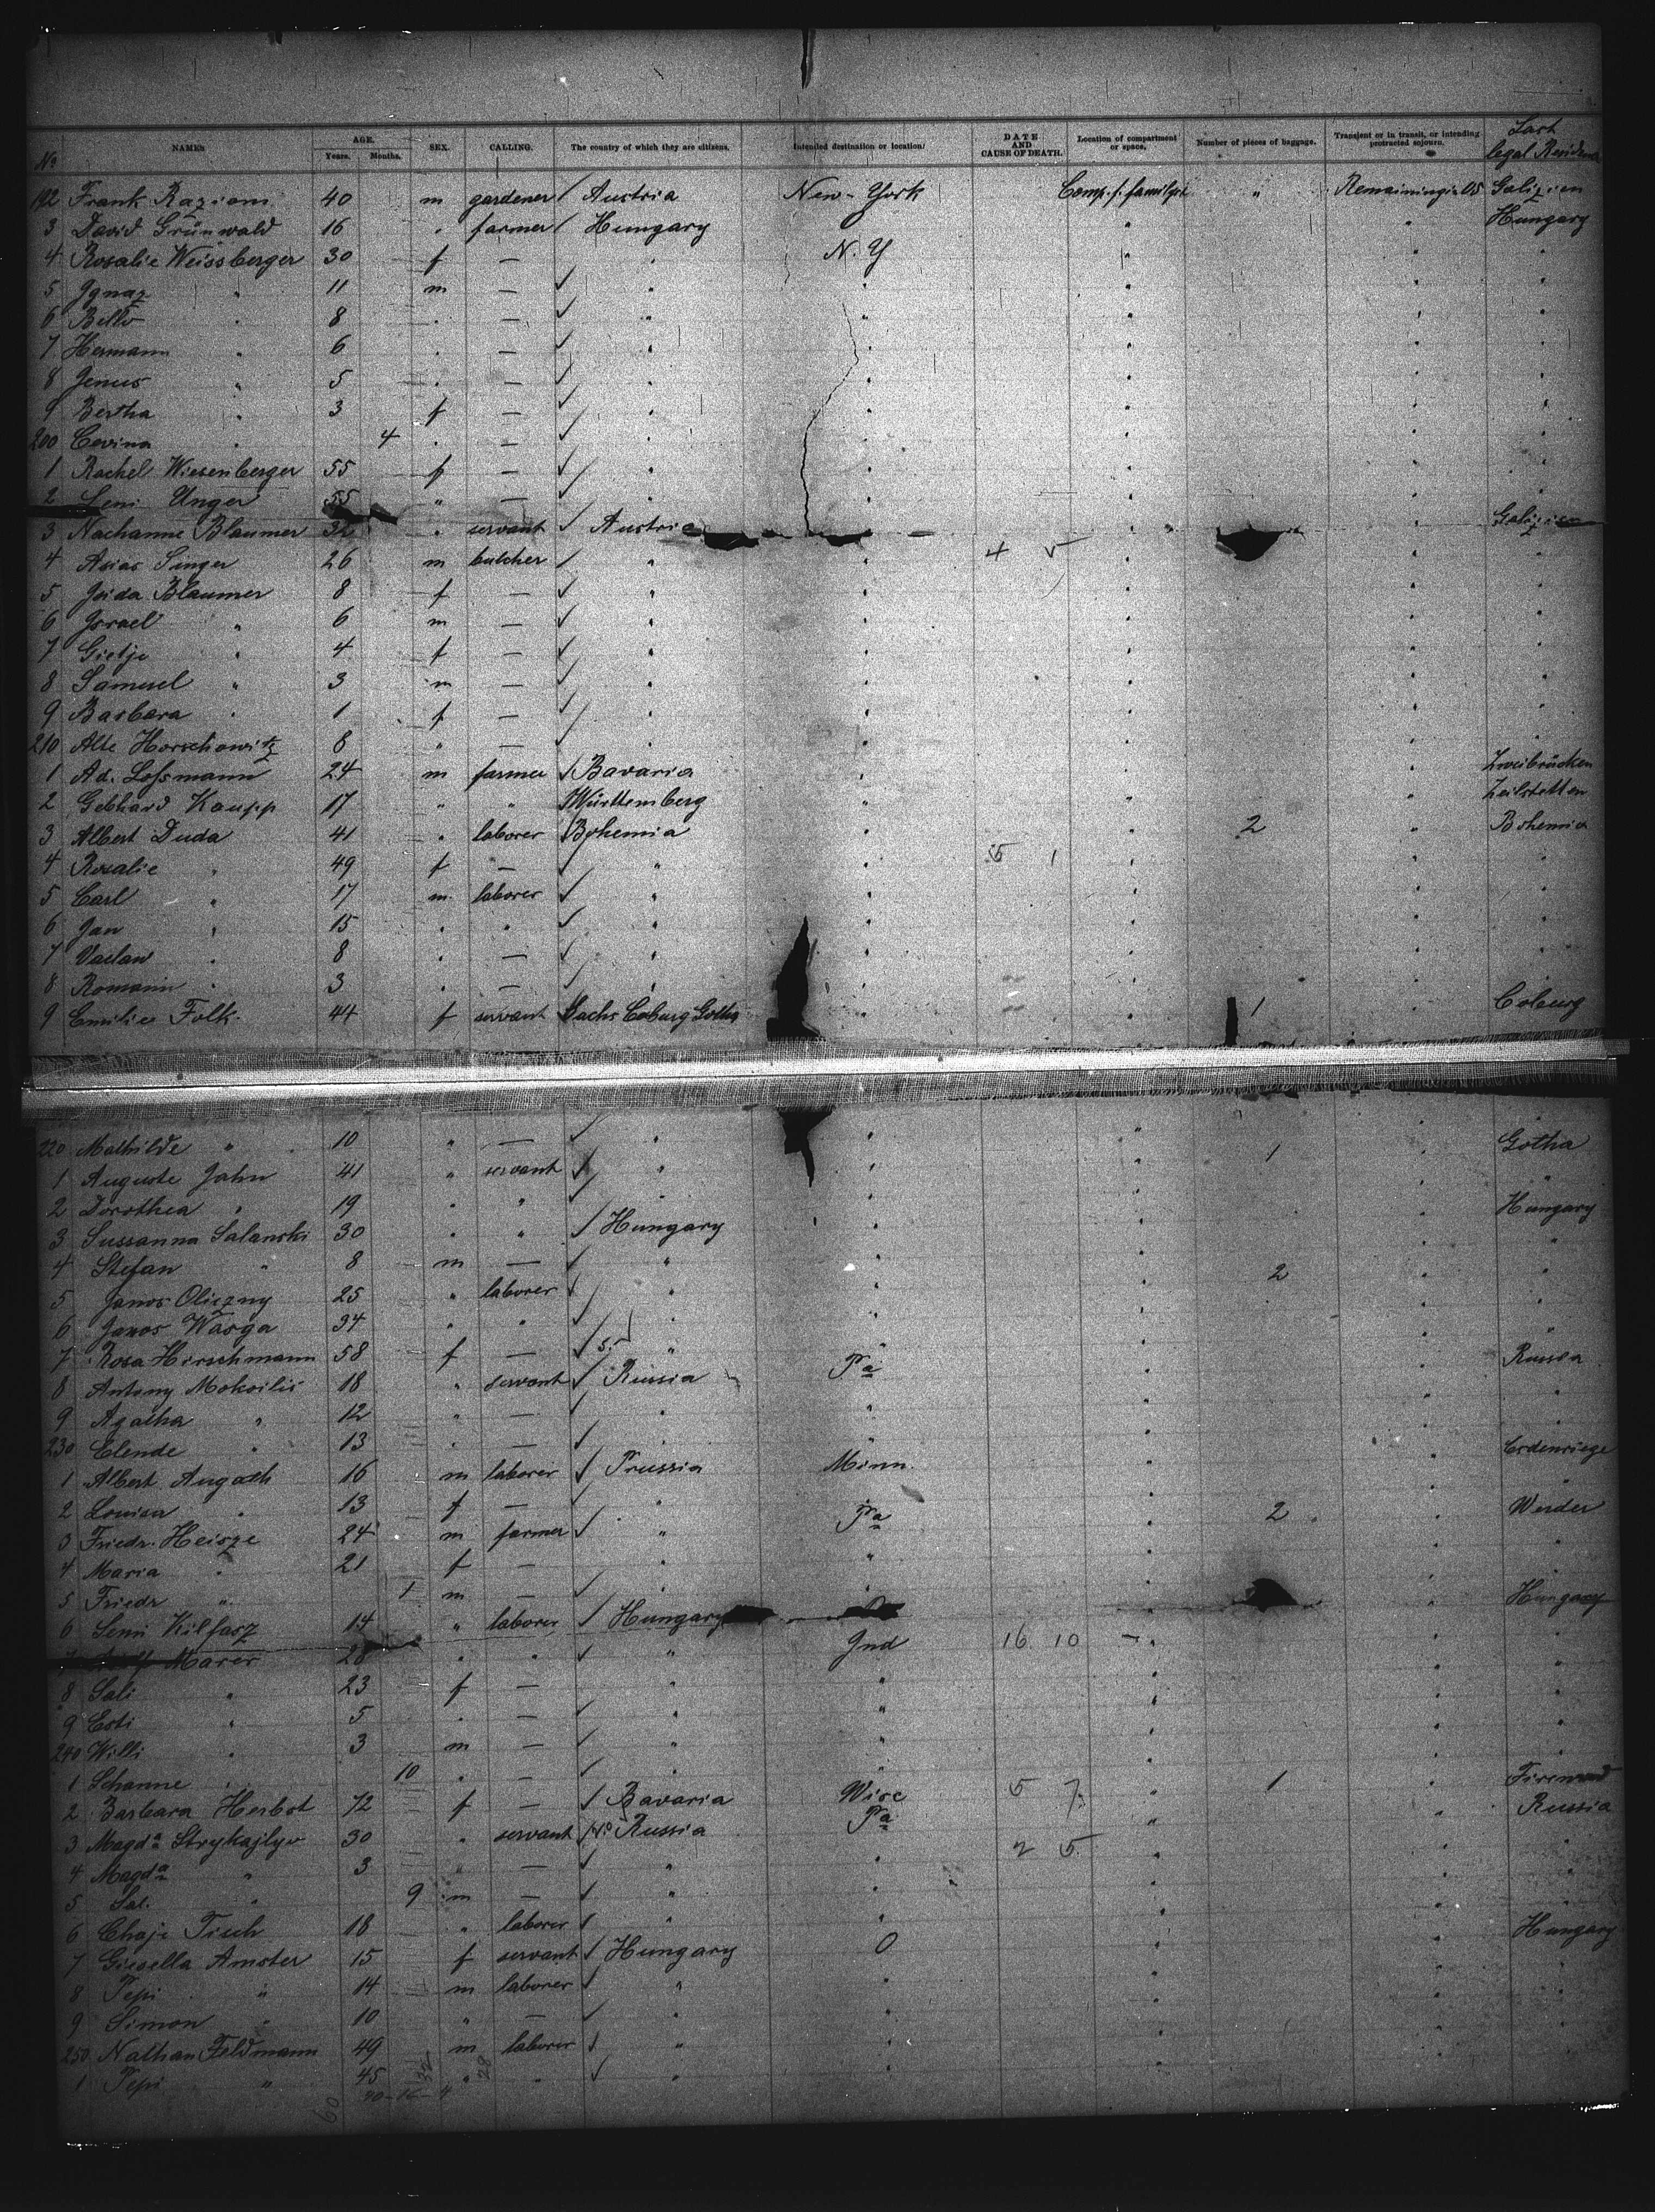 No NAMES AGE. Years. Months. SEX. CALLING. The country of which they are citizens. Intended destination or location. DATE AND CAUSE OF DEATH. Location of compartment or space. Number of pieces of baggage. Transient or in transit, or intending protracted sojourn. Last legal Residence
192 Frank 40 m gardener / Austria New-York " Galizien
3 David Grünwald 16 " farmer / Hungary " " Hungary
4 Rosalie Weissberger 30 f — " N. Y " " "
5 Ignaz " 11 m — ✓ " " " " "
6 " 8 " — ✓ " " " " "
7 Hermann " 6 " — ✓ " " " " "
8 " 5 " — ✓ " " " " "
9 Bertha " 3 f — ✓ " " " " "
200 " 4 " — ✓ " " " " "
1 Rachel Wiesenberger 55 f — ✓ " " " " "
2 Leni Unger 55 " — ✓ " " " " "
3 Nachanne Blaumer " servant ✓ Austria " " " Galizien
4 Asias Singer 26 m butcher / " " 4 5 " " "
5 Blaumer 8 f — ✓ " " " " "
6 Israel " 6 m — ✓ " " " " "
7 Gietje " 4 f — ✓ " " " " "
8 Samuel " 3 m — ✓ " " " " "
9 Barbara " 1 f — ✓ " " " " "
210 Alte Horschowitz 8 " — ✓ " " " " "
1 Ad. Lossmann 24 m farmer / Bavaria " " " Zweibrücken
2 Gebhard Kaupp 17 " " / Württemberg " " " Zeilstetten
3 Albert Duda 41 " laborer / Bohemia " " 2 " Bohemia
4 Rosalie " 49 f — ✓ " " 55 1 " " "
5 Carl " 17 m laborer ✓ " " " " "
6 Jan " 15 " " ✓ " " " " "
7 Vaclaw " 8 " — ✓ " " " " "
8 Romann " 3 " — ✓ " " " " "
9 Emilie Folk 44 f servant Sachs Coburg Gotha " " 1 " Coburg
220 Mathilde " 10 " — ✓ " " " 1 " Gotha
1 Auguste Jahn 41 " servant ✓ " " " " "
2 Dorothea " 19 " " ✓ " " " " Hungary
3 Sussanna Salanski 30 " " / Hungary " " " "
4 Stefan " 8 m — ✓ " " " 2 " "
5 Janos Oliczny 25 " laborer ✓ " " " " "
6 Janos Warga 34 " " ✓ " " " " "
7 Rosa Hirschmann 58 f — ✓ " " " " Russia
8 Antony Mokoilis 18 " servant ✓ Russia Pa " " "
9 Agatha " 12 " — ✓ " " " " "
230 Elende " 13 " — ✓ " " " "
1 Albert Augath 16 m laborer / Prussia Minn. " " "
2 Louisa " 13 f — ✓ " " " 2 " Werder
3 Friedr. Heisze 24 m farmer ✓ " Pa " " "
4 Maria " 21 f — " " " " "
5 Friedr " 1 m — ✓ " " " " Hungary
6 14 " laborer / Hungary " "
Marer 28 " " ✓ " Ind 16 10 — " " "
8 Sali " 23 f — " " " " "
9 Esti " 5 " — ✓ " " " " "
240 Willi " 3 m — ✓ " " " " "
1 Schanne " 10 " — ✓ " " " 1 "
2 Barbara Herbst 72 f — / Bavaria Wisc 5 7 " " Russia
3 Magda 30 " servant / Russia Pa 2 5 " " "
4 Magda " 3 " — ✓ " " " " "
5 Sal. " 9 m — ✓ " " " " "
6 Chaje Tisch 18 " laborer / " " " " Hungary
7 Giesella Amster 15 f servant / Hungary O " " "
8 Pepi " 14 m laborer / " " " " "
9 Simon " 10 " — ✓ " " " " "
250 Nathan Feldmann 49 m laborer / " " " " "
1 Pepi " 45 " " ✓ " " " " "
60
32
28